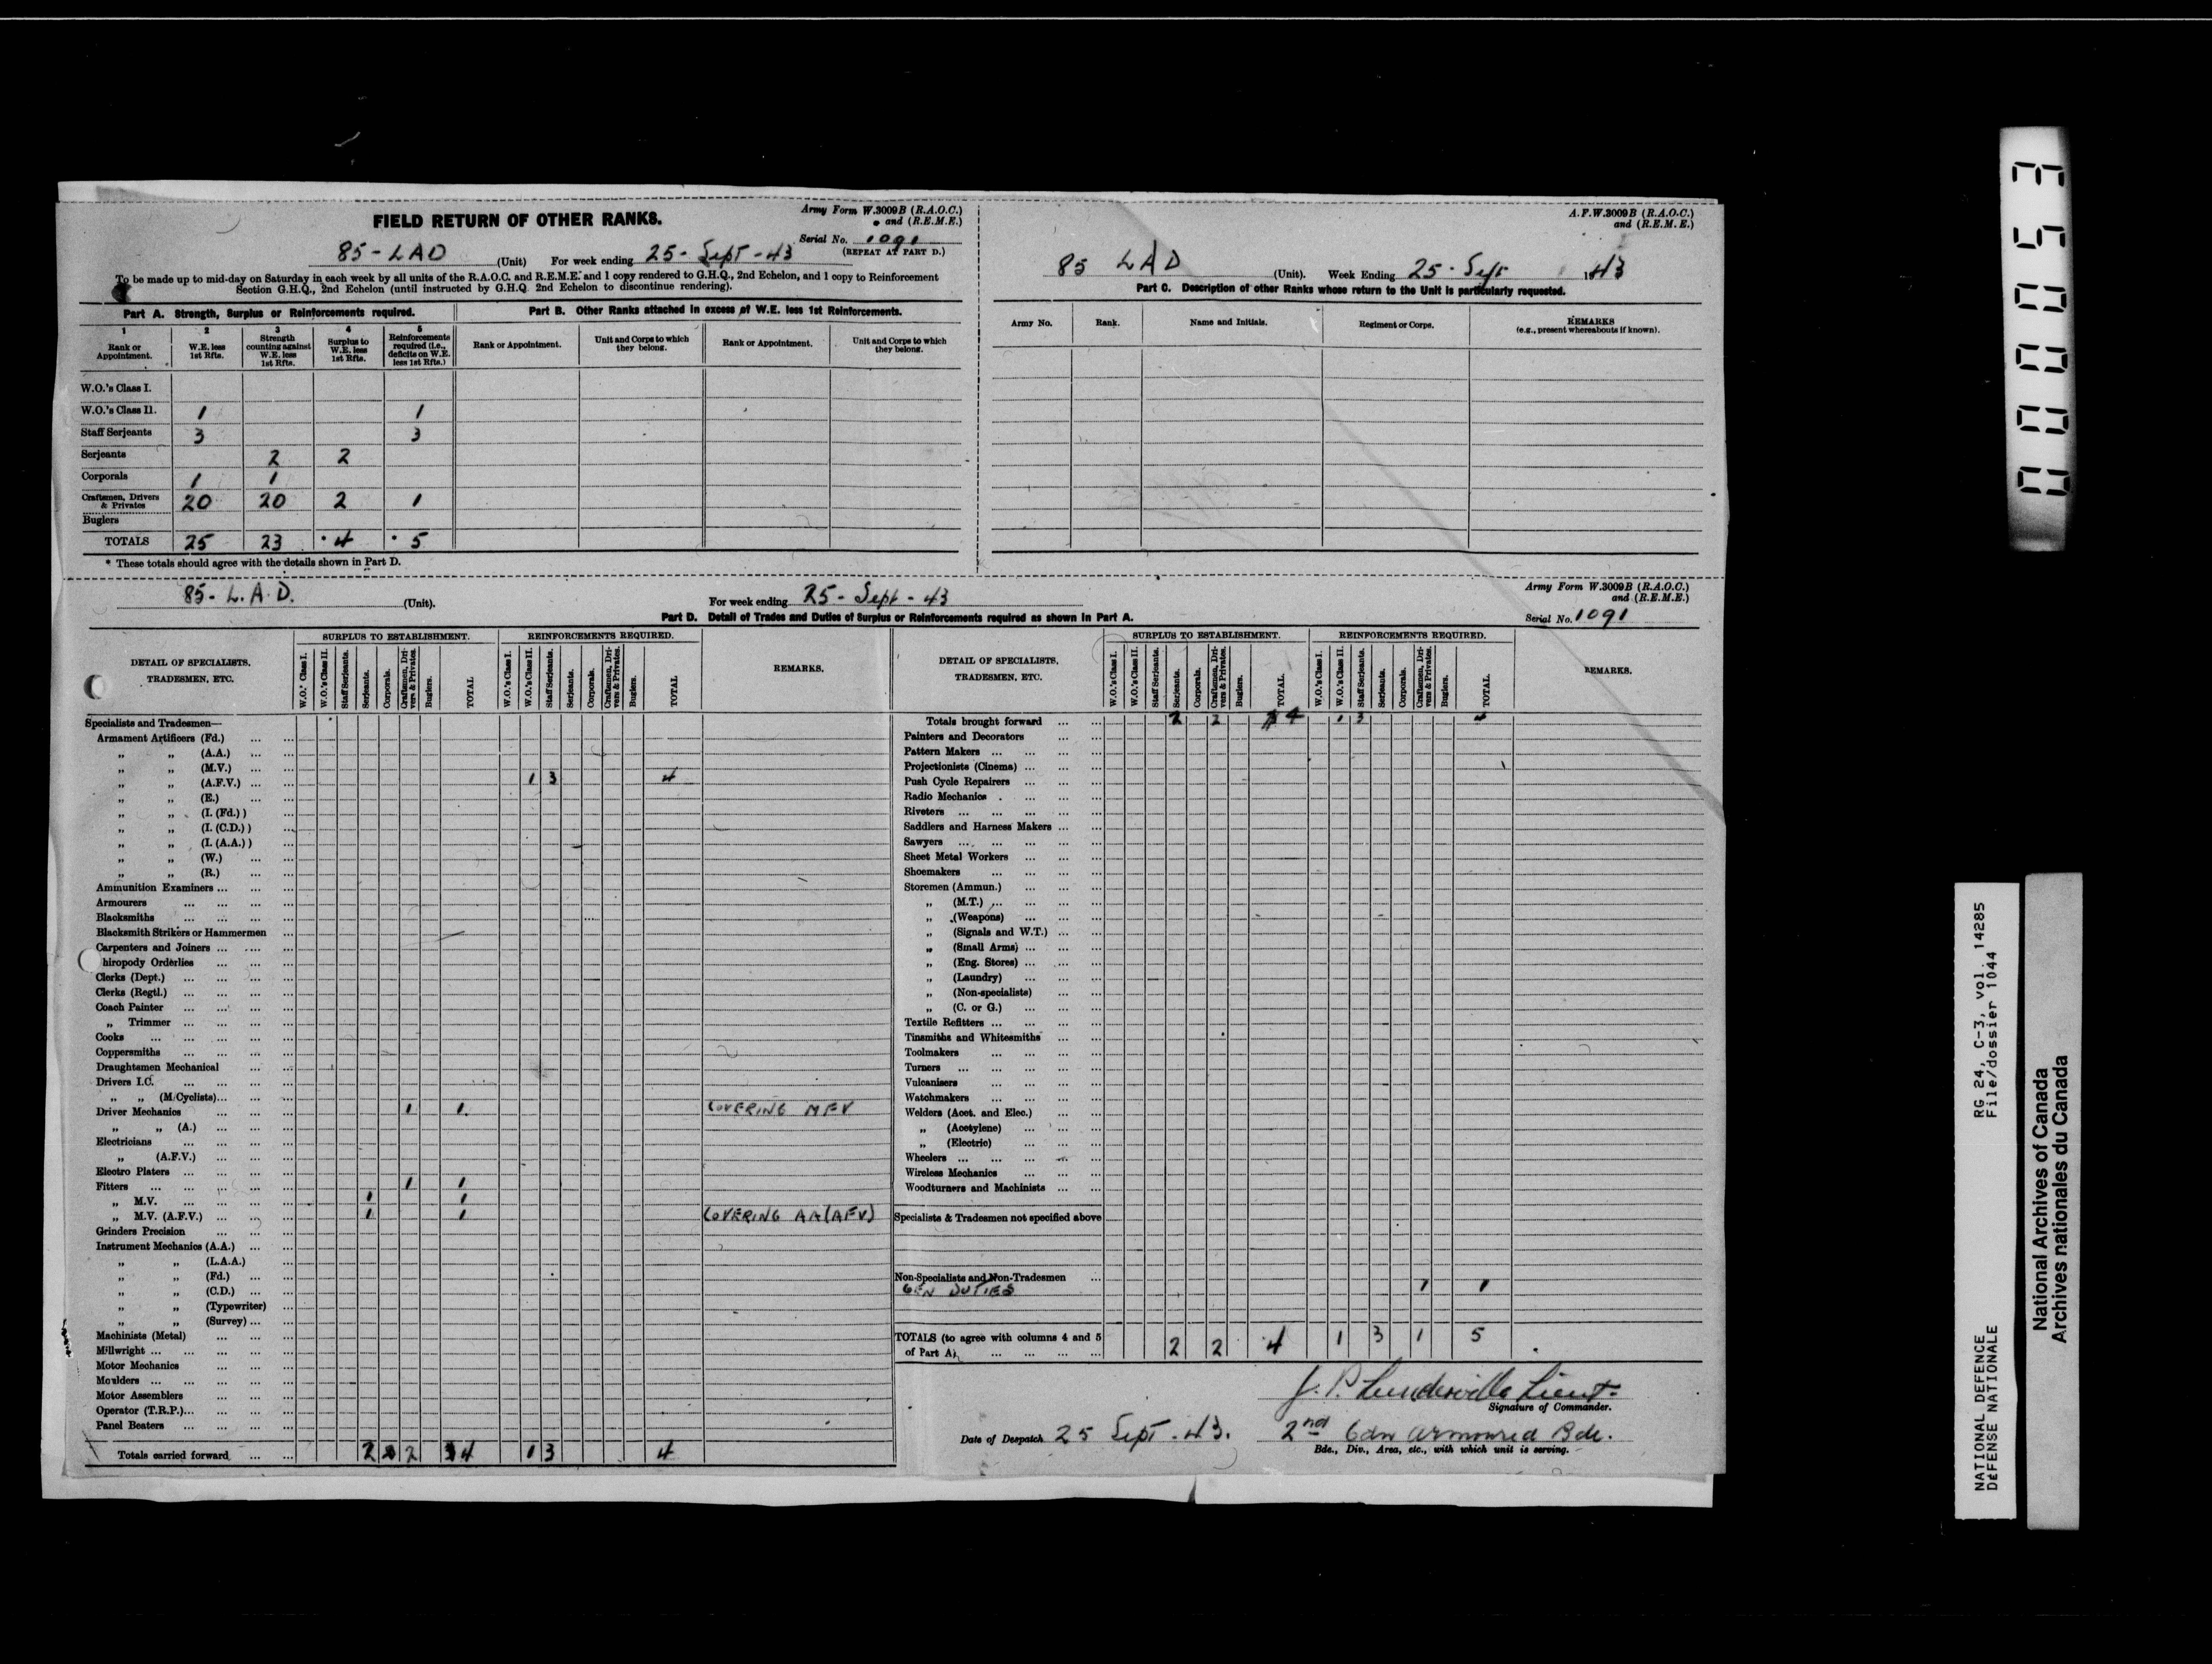 FIELD RETURN OF OTHER RANKS.
Army Form W.3009B (R.A.O.C.)
and (R.E.M.E.)
Serial No. 1091
(REPEAT AT PART D.)
85 - LAD (Unit) For week ending 25 - Sept - 43
To be made up to mid-day on Saturday in each week by all units of the R.A.O.C. and R.E.M.E. and 1 copy rendered to G.H.Q., 2nd Echelon, and 1 copy to Reinforcement
Section G.H.Q., 2nd Echelon (until instructed by G.H.Q. 2nd Echelon to discontinue rendering).
Part A. Strength, Surplus or Reinforcements required.
Part B. Other Ranks attached in excess of W.E. less 1st Reinforcements.
1 2 3 4 5
Rank or Appointment. W.E. less 1st Rfts. Strength counting against W.E. less 1st Rfts. Surplus to W.E. less 1st Rfts. Reinforcements required (i.e., deficits on W.E. less 1st Rfts.)
Rank or Appointment. Unit and Corps to which they belong. Rank or Appointment. Unit and Corps to which they belong.
W.O.'s Class I.
W.O.'s Class II. 1 1
Staff Serjeants 3 3
Serjeants 2 2
Corporals 1 1
Craftsmen, Drivers & Privates 20 20 2 1
Buglers
TOTALS 25 23 * 4 * 5
* These totals should agree with the details shown in Part D.
A.F.W.3009B (R.A.O.C.)
and (R.E.M.E.)
85 LAD (Unit). Week Ending 25 - Sept 1943
Part C. Description of other Ranks whose return to the Unit is particularly requested.
Army No. Rank. Name and Initials. Regiment or Corps. REMARKS (e.g., present whereabouts if known).
85 - L.A.D. (Unit). For week ending 25 - Sept - 43
Army Form W.3009B (R.A.O.C.)
and (R.E.M.E.)
Serial No. 1091
Part D. Detail of Trades and Duties of Surplus or Reinforcements required as shown in Part A.
DETAIL OF SPECIALISTS, TRADESMEN, ETC.
SURPLUS TO ESTABLISHMENT.
W.O.' Class I. W.O.'s Class II. Staff Serjeants. Serjeants. Corporals. Craftsmen, Drivers & Privates. Buglers. TOTAL
REINFORCEMENTS REQUIRED.
W.O.'s Class I. W.O.'s Class II. Staff Serjeants. Serjeants. Corporals. Craftsmen, Drivers & Privates. Buglers. TOTAL
REMARKS.
Specialists and Tradesmen—
Armament Artificers (Fd.) ... ...
„ „ (A.A.) ... ...
„ „ (M.V.) ... ...
„ „ (A.F.V.) ... ... 1 3 4
„ „ (E.) ... ...
„ „ (I. (Fd.) ) ...
„ „ (I. (C.D.) ) ...
„ „ (I. (A.A.) ) ...
„ „ (W.) ... ...
„ „ (R.) ... ...
Ammunition Examiners ... ... ...
Armourers ... ... ... ...
Blacksmiths ... ... ... ...
Blacksmith Strikers or Hammermen ...
Carpenters and Joiners ... ... ...
hiropody Orderlies ... ... ...
Clerks (Dept.) ... ... ... ...
Clerks (Regtl.) ... ... ... ...
Coach Painter ... ... ... ...
„ Trimmer ... ... ... ...
Cooks ... ... ... ... ...
Coppersmiths ... ... ... ...
Draughtsmen Mechanical ... ...
Drivers I.C. ... ... ... ...
„ „ (M/Cyclists)... ... ...
Driver Mechanics ... ... ... 1 1 COVERING MFV
„ „ (A.) ... ... ...
Electricians ... ... ... ...
„ (A.F.V.) ... ... ...
Electro Platers ... ... ... ...
Fitters ... ... ... ... ... 1 1
„ M.V. ... ... ... ... 1 1
„ M.V. (A.F.V.) ... ... ... 1 1 COVERING AA (AFV)
Grinders Precision ... ... ...
Instrument Mechanics (A.A.) ... ...
„ „ (L.A.A.) ...
„ „ (Fd.) ... ...
„ „ (C.D.) ... ...
„ „ (Typewriter) ...
„ „ (Survey) ... ...
Machinists (Metal) ... ... ...
Millwright ... ... ... ... ...
Motor Mechanics ... ... ...
Moulders ... ... ... ... ...
Motor Assemblers ... ... ...
Operator (T.R.P.)... ... ... ...
Panel Beaters ... ... ... ...
Totals carried forward ... ... 2 2 4 1 3 4
DETAIL OF SPECIALISTS, TRADESMEN, ETC.
SURPLUS TO ESTABLISHMENT.
W.O.'s Class I. W.O.'s Class II. Staff Serjeants. Serjeants. Corporals. Craftsmen, Drivers & Privates. Buglers. TOTAL.
REINFORCEMENTS REQUIRED.
W.O.'s Class I. W.O.'s Class II. Staff Serjeants. Serjeants. Corporals. Craftsmen, Drivers & Privates. Buglers. TOTAL.
REMARKS.
Totals brought forward ... ... 2 2 4 1 3 4
Painters and Decorators ... ...
Pattern Makers ... ... ... ...
Projectionists (Cinema) ... ... ...
Push Cycle Repairers ... ... ...
Radio Mechanics . ... ... ...
Riveters ... ... ... ... ...
Saddlers and Harness Makers ... ...
Sawyers ... ... ... ... ...
Sheet Metal Workers ... ... ...
Shoemakers ... ... ... ...
Storemen (Ammun.) ... ... ...
„ (M.T.) ... ... ... ...
„ (Weapons) ... ... ...
„ (Signals and W.T.) ... ...
„ (Small Arms) ... ... ...
„ (Eng. Stores) ... ... ...
„ (Laundry) ... ... ...
„ (Non-specialists) ... ...
„ (C. or G.) ... ... ...
Textile Refitters ... ... ... ...
Tinsmiths and Whitesmiths ... ...
Toolmakers ... ... ... ...
Turners ... ... ... ... ...
Vulcanisers ... ... ... ...
Watchmakers ... ... ... ...
Welders (Acet. and Elec.) ... ...
„ (Acetylene) ... ... ...
„ (Electric) ... ... ...
Wheelers ... ... ... ... ...
Wireless Mechanics ... ... ...
Woodturners and Machinists ... ...
Specialists & Tradesmen not specified above
Non-Specialists and Non-Tradesmen ...
GEN DUTIES 1 1
TOTALS (to agree with columns 4 and 5
of Part A). ... ... ... ... 2 2 4 1 3 1 5
J. P. Lieut.
Signature of Commander.
Date of Despatch 25 Sept - 43. 2nd Cdn Armoured Bde.
Bde., Div., Area, etc., with which unit is serving.
000053
RG 24, C-3, vol. 14285
File/dossier 1044
NATIONAL DEFENCE
DÉFENSE NATIONALE
National Archives of Canada
Archives nationales du Canada